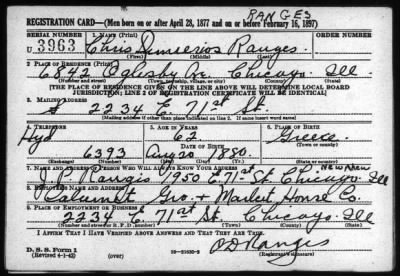 RANGES
REGISTRATION CARD—(Men born on or after April 28, 1877 and on or before February 16, 1897)
SERIAL NUMBER 1. NAME (Print) ORDER NUMBER
U 3963 Chris Demetrios Ranges
(First) (Middle) (Last)
2. PLACE OF RESIDENCE (Print)
6842 Oglesby Av. Chicago Ill
(Number and street) (Town, township, village, or city) (County) (State)
[THE PLACE OF RESIDENCE GIVEN ON THE LINE ABOVE WILL DETERMINE LOCAL BOARD
JURISDICTION; LINE 2 OF REGISTRATION CERTIFICATE WILL BE IDENTICAL]
3. MAILING ADDRESS
2234 E. 71st St.
(Mailing address if other than place indicated on line 2. If same insert word same)
4. TELEPHONE 5. AGE IN YEARS 6. PLACE OF BIRTH
Hyd 62 Greece
DATE OF BIRTH (Town or county)
6393 Aug 20 1880
(Exchange) (Number) (Mo.) (Day) (Yr.) (State or country)
7. NAME AND ADDRESS OF PERSON WHO WILL ALWAYS KNOW YOUR ADDRESS
J. P. Rangis 1950 E. 71st St Chicago Ill
8. EMPLOYER'S NAME AND ADDRESS
Calumet Gro. + Market House Co.
9. PLACE OF EMPLOYMENT OR BUSINESS
2234 E. 71st St. Chicago Ill
(Number and street or R. F. D. number) (Town) (County) (State)
I AFFIRM THAT I HAVE VERIFIED ABOVE ANSWERS AND THAT THEY ARE TRUE.
D. S. S. Form 1
(Revised 4-1-42) (over) (Registrant's signature)